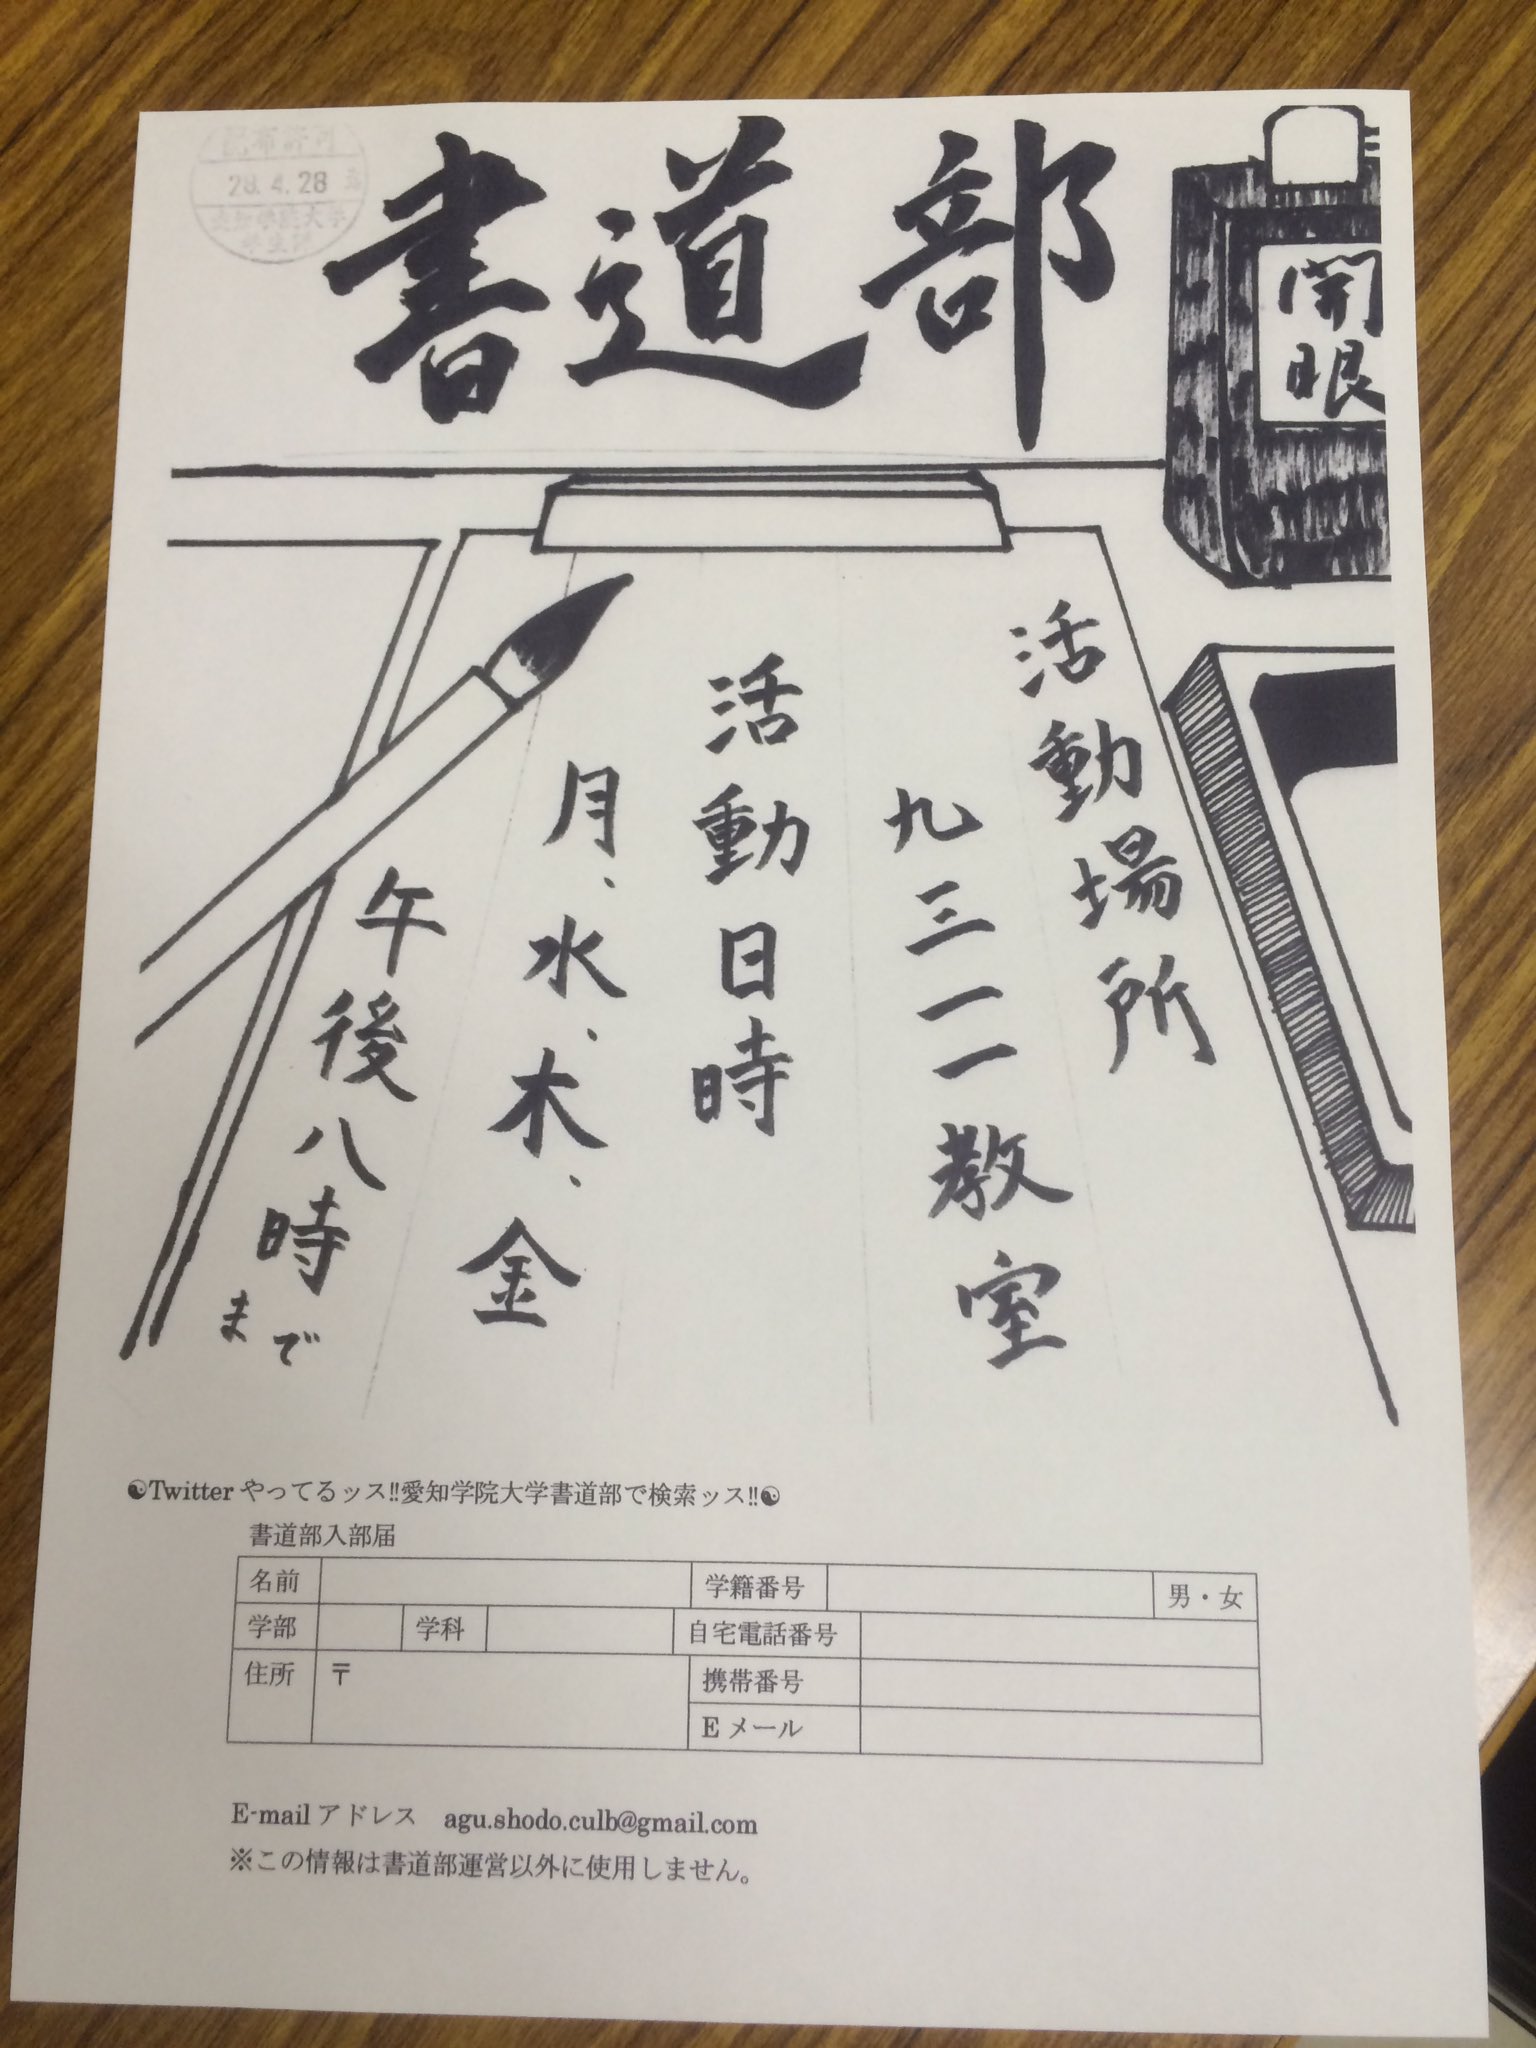 配布許可
28.4.28
愛知学院大学
学生課
書道部
開眼
活動場所
九三一一教室
活動日時
月、水、木、金
午後八時まで
☯Twitterやってるッス!!愛知学院大学書道部で検索ッス!!☯
書道部入部届
名前 学籍番号 男・女
学部 学科 自宅電話番号
住所 〒 携帯番号
Eメール
E-mailアドレス agu.shodo.culb@gmail.com
※この情報は書道部運営以外に使用しません。